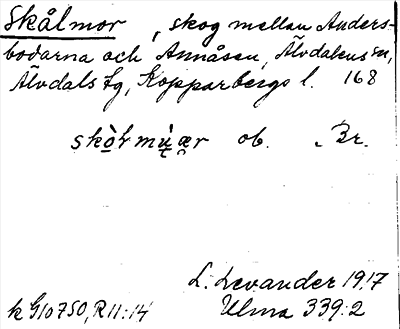 Skålmor, skog mellan Anders-
bodarna och Annåsen, Älvdalens sn,
Älvdals tg, Kopparbergs l. 168
ob. Br.
L. Levander 1917
k G10750, R11:14 Ulma 339:2